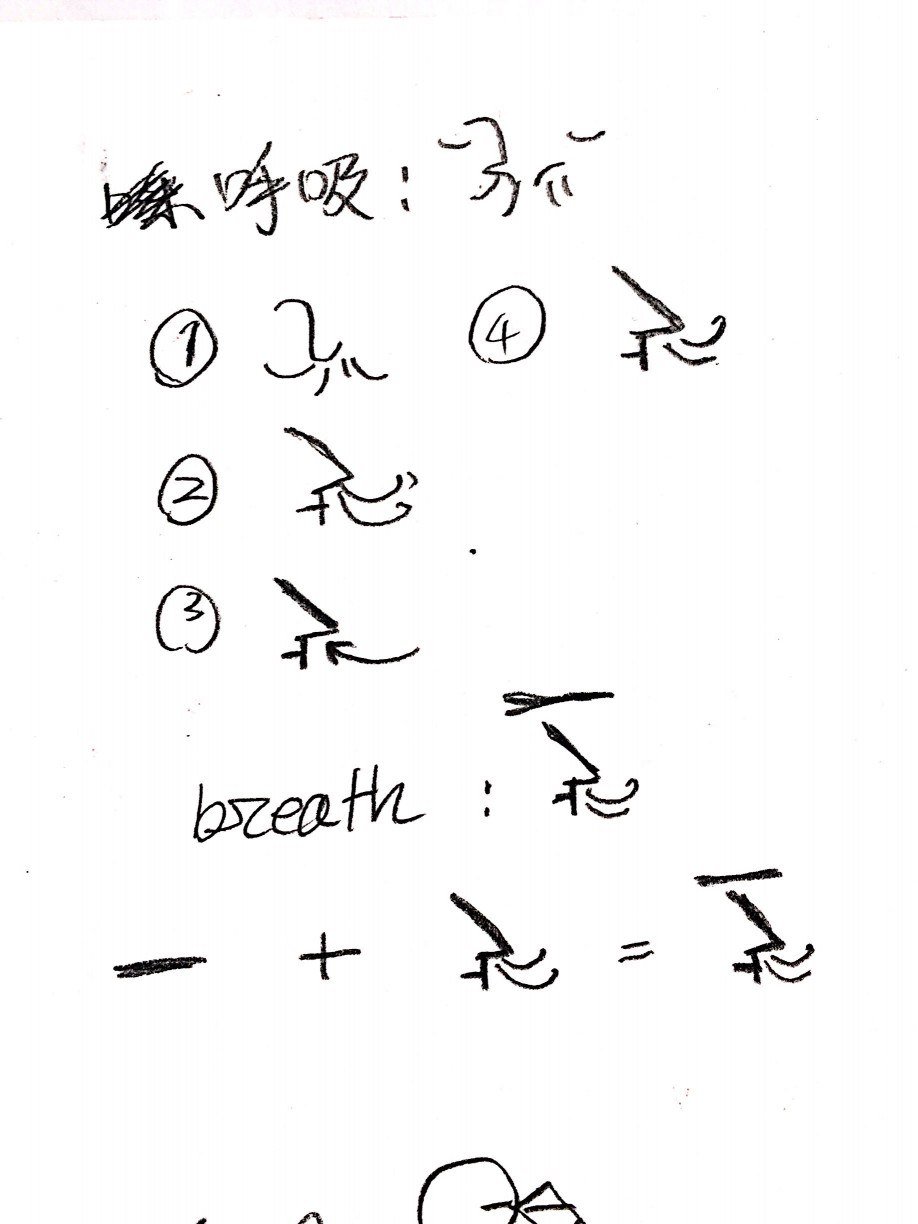 呼吸:
① ④
②
③
breath :
— + =